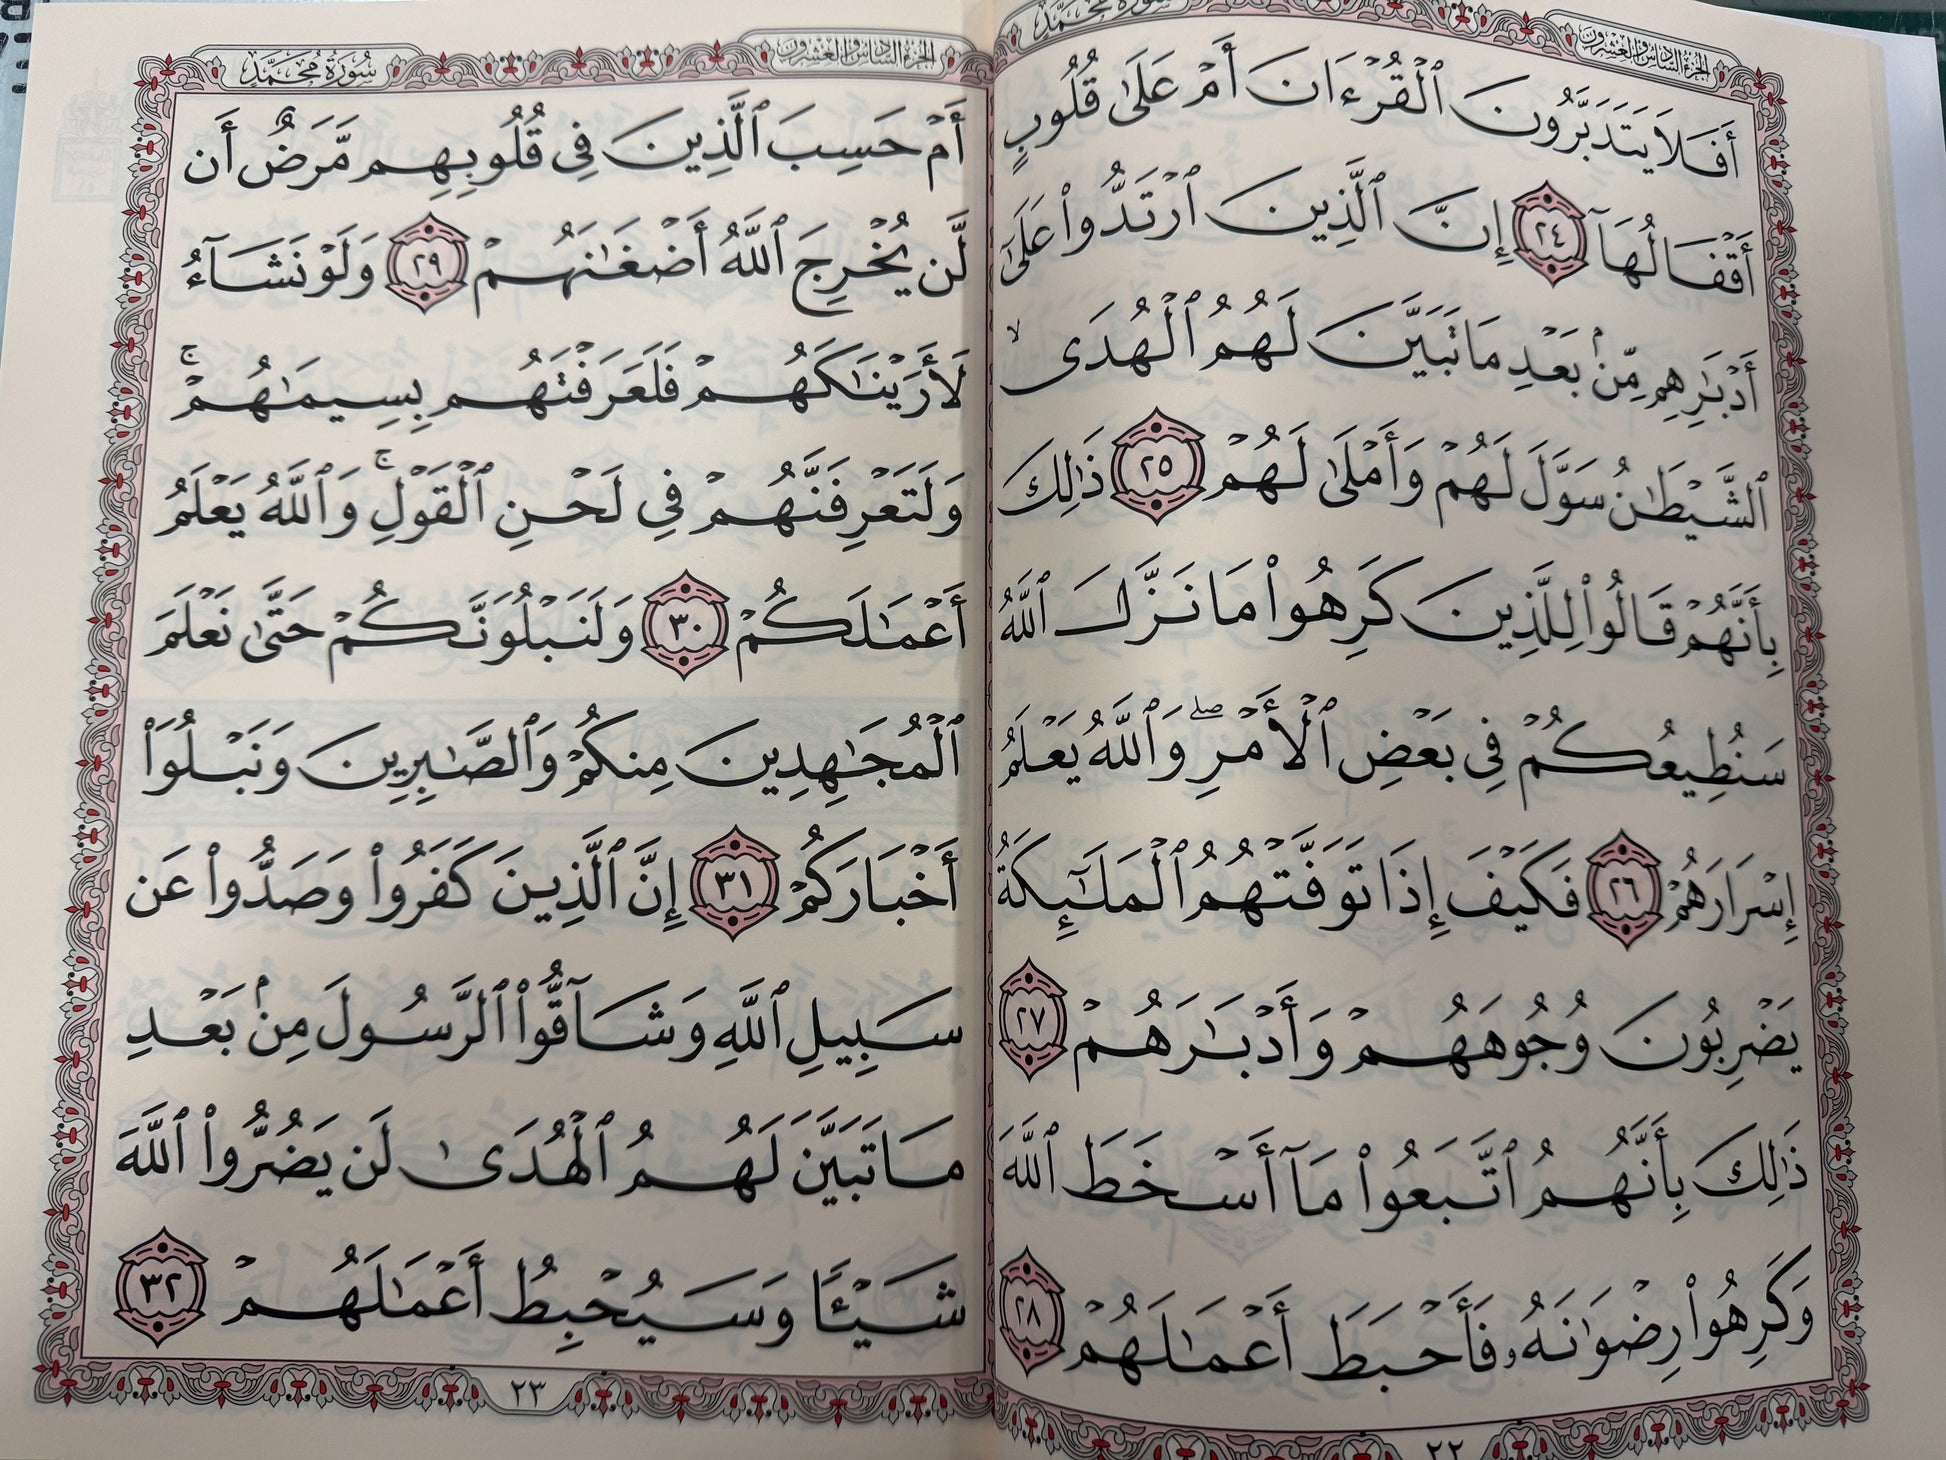 سُورَةُ مُحَمَّدٍ
الجزء السادس والعشرون
أَفَلَا يَتَدَبَّرُونَ ٱلْقُرْءَانَ أَمْ عَلَىٰ قُلُوبٍ
أَقْفَالُهَآ ٢٤ إِنَّ ٱلَّذِينَ ٱرْتَدُّوا۟ عَلَىٰٓ
أَدْبَٰرِهِم مِّنۢ بَعْدِ مَا تَبَيَّنَ لَهُمُ ٱلْهُدَى ۙ
ٱلشَّيْطَٰنُ سَوَّلَ لَهُمْ وَأَمْلَىٰ لَهُمْ ٢٥ ذَٰلِكَ
بِأَنَّهُمْ قَالُوا۟ لِلَّذِينَ كَرِهُوا۟ مَا نَزَّلَ ٱللَّهُ
سَنُطِيعُكُمْ فِى بَعْضِ ٱلْأَمْرِ ۖ وَٱللَّهُ يَعْلَمُ
إِسْرَارَهُمْ ٢٦ فَكَيْفَ إِذَا تَوَفَّتْهُمُ ٱلْمَلَٰٓئِكَةُ
يَضْرِبُونَ وُجُوهَهُمْ وَأَدْبَٰرَهُمْ ٢٧
ذَٰلِكَ بِأَنَّهُمُ ٱتَّبَعُوا۟ مَآ أَسْخَطَ ٱللَّهَ
وَكَرِهُوا۟ رِضْوَٰنَهُۥ فَأَحْبَطَ أَعْمَٰلَهُمْ ٢٨
٢٢
الجزء السادس والعشرون
سُورَةُ مُحَمَّدٍ
أَمْ حَسِبَ ٱلَّذِينَ فِى قُلُوبِهِم مَّرَضٌ أَن
لَّن يُخْرِجَ ٱللَّهُ أَضْغَٰنَهُمْ ٢٩ وَلَوْ نَشَآءُ
لَأَرَيْنَٰكَهُمْ فَلَعَرَفْتَهُم بِسِيمَٰهُمْ ۚ
وَلَتَعْرِفَنَّهُمْ فِى لَحْنِ ٱلْقَوْلِ ۚ وَٱللَّهُ يَعْلَمُ
أَعْمَٰلَكُمْ ٣٠ وَلَنَبْلُوَنَّكُمْ حَتَّىٰ نَعْلَمَ
ٱلْمُجَٰهِدِينَ مِنكُمْ وَٱلصَّٰبِرِينَ وَنَبْلُوَا۟
أَخْبَارَكُمْ ٣١ إِنَّ ٱلَّذِينَ كَفَرُوا۟ وَصَدُّوا۟ عَن
سَبِيلِ ٱللَّهِ وَشَآقُّوا۟ ٱلرَّسُولَ مِنۢ بَعْدِ
مَا تَبَيَّنَ لَهُمُ ٱلْهُدَىٰ لَن يَضُرُّوا۟ ٱللَّهَ
شَيْـًٔا وَسَيُحْبِطُ أَعْمَٰلَهُمْ ٣٢
٢٣